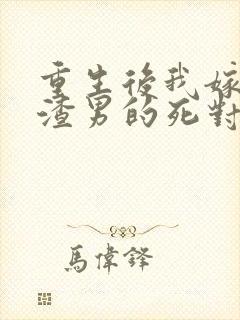 重生後我嫁
渣男的死對
馬偉鋒